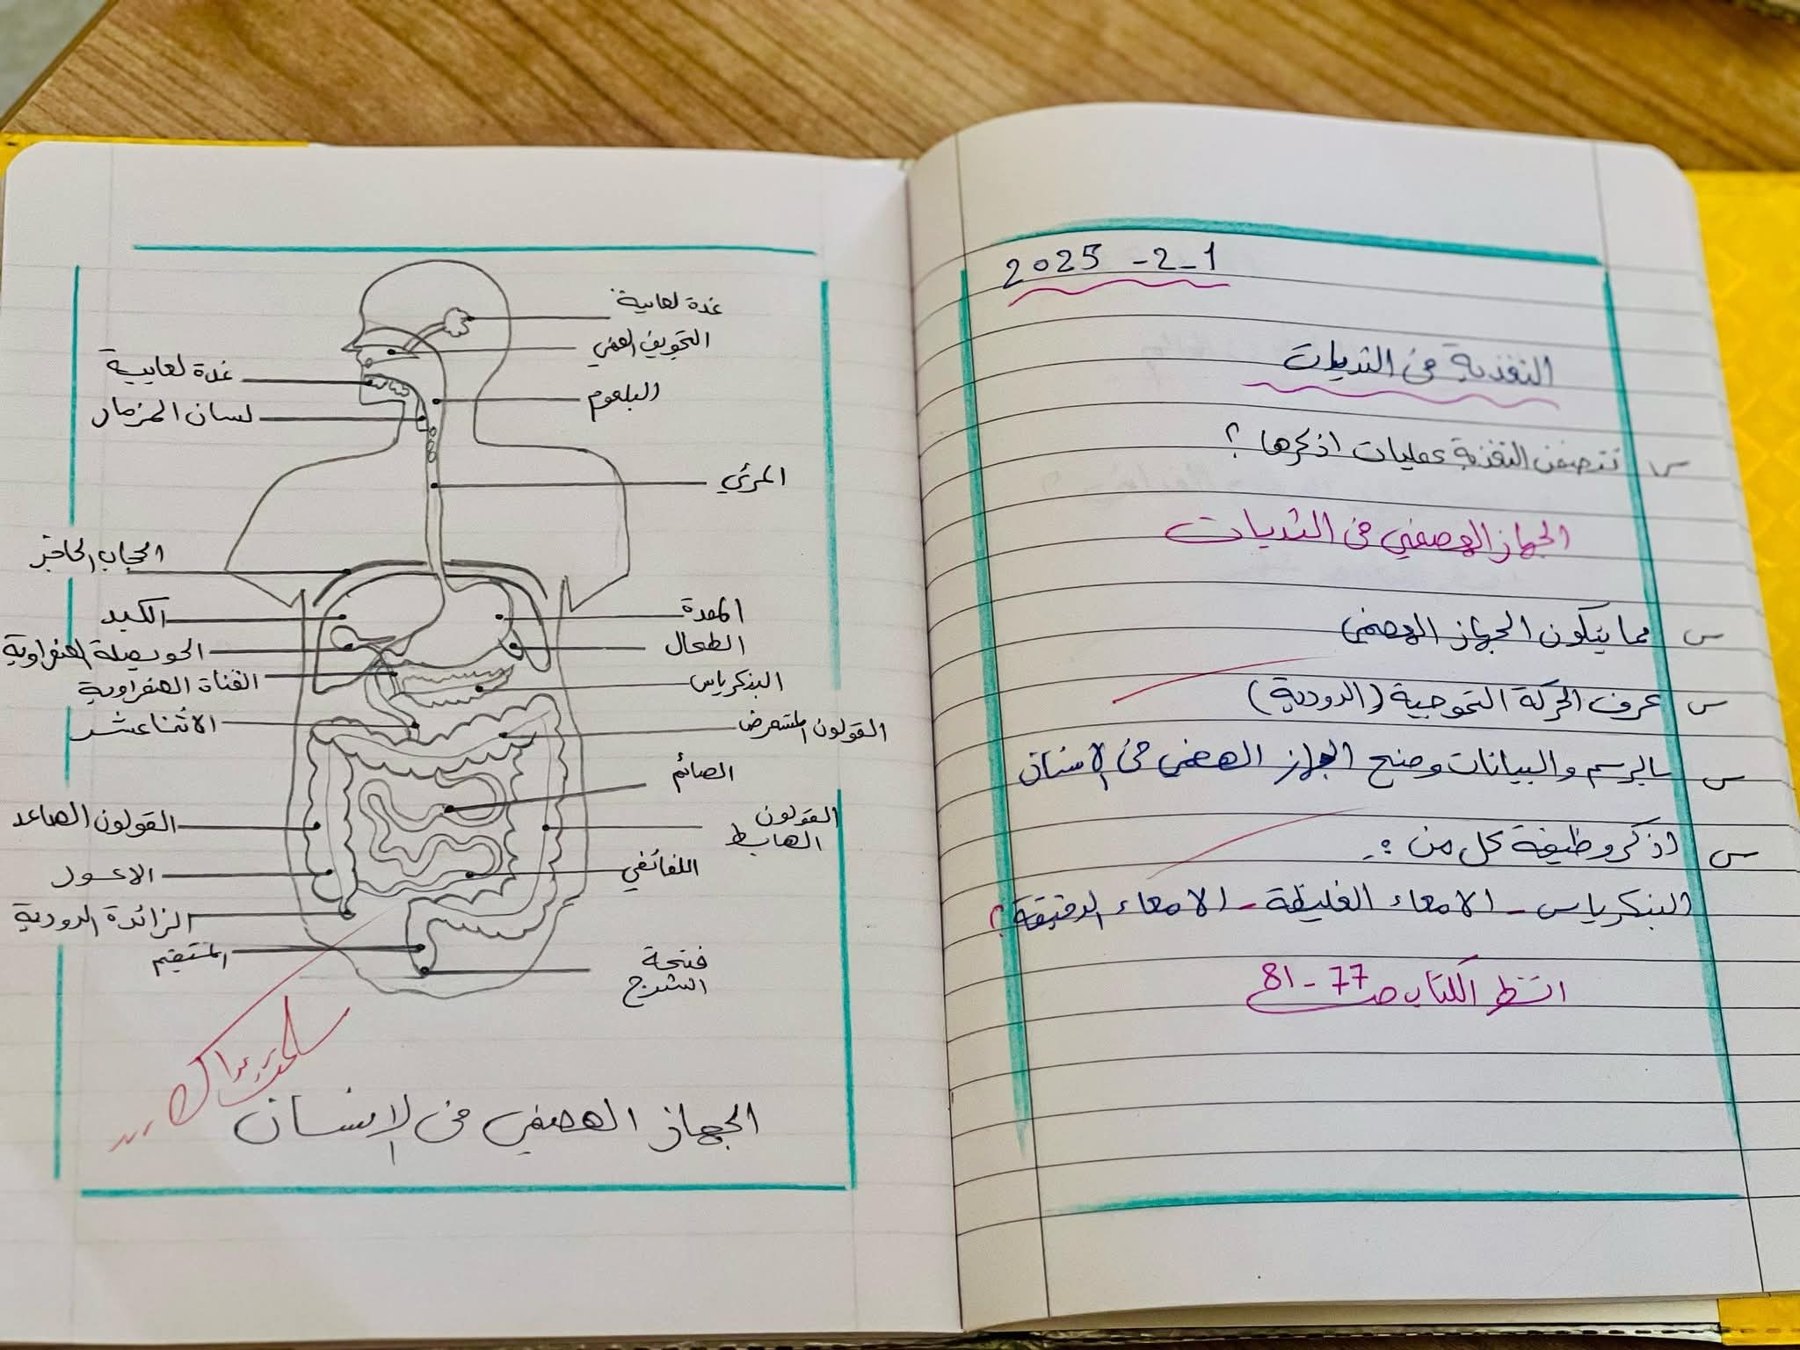 2025 -2-1
التغذية في الثدييات
س تتضمن التغذية عمليات اذكرها ؟
الجهاز الهضمي في الثدييات
س مما يتكون الجهاز الهضمي
س عرف الحركة التموجية (الدودية)
س بالرسم والبيانات وضح الجهاز الهضمي في الانسان
س اذكر وظيفة كل من :-
البنكرياس - الامعاء الغليظة - الامعاء الدقيقة ؟
انظر الكتاب ص 77 - 81
غدة لعابية
التجويف الفمي
غدة لعابية
البلعوم
لسان المزمار
المرئي
الحجاب الحاجز
المعدة
الكبد
الطحال
الحويصلة الصفراوية
البنكرياس
القناة الصفراوية
الاثناعشر
القولون المستعرض
الصائم
القولون الصاعد
القولون
الهابط
اللفائفي
الاعور
الزائدة الدودية
المستقيم
فتحة
الشرج
الجهاز الهضمي في الانسان